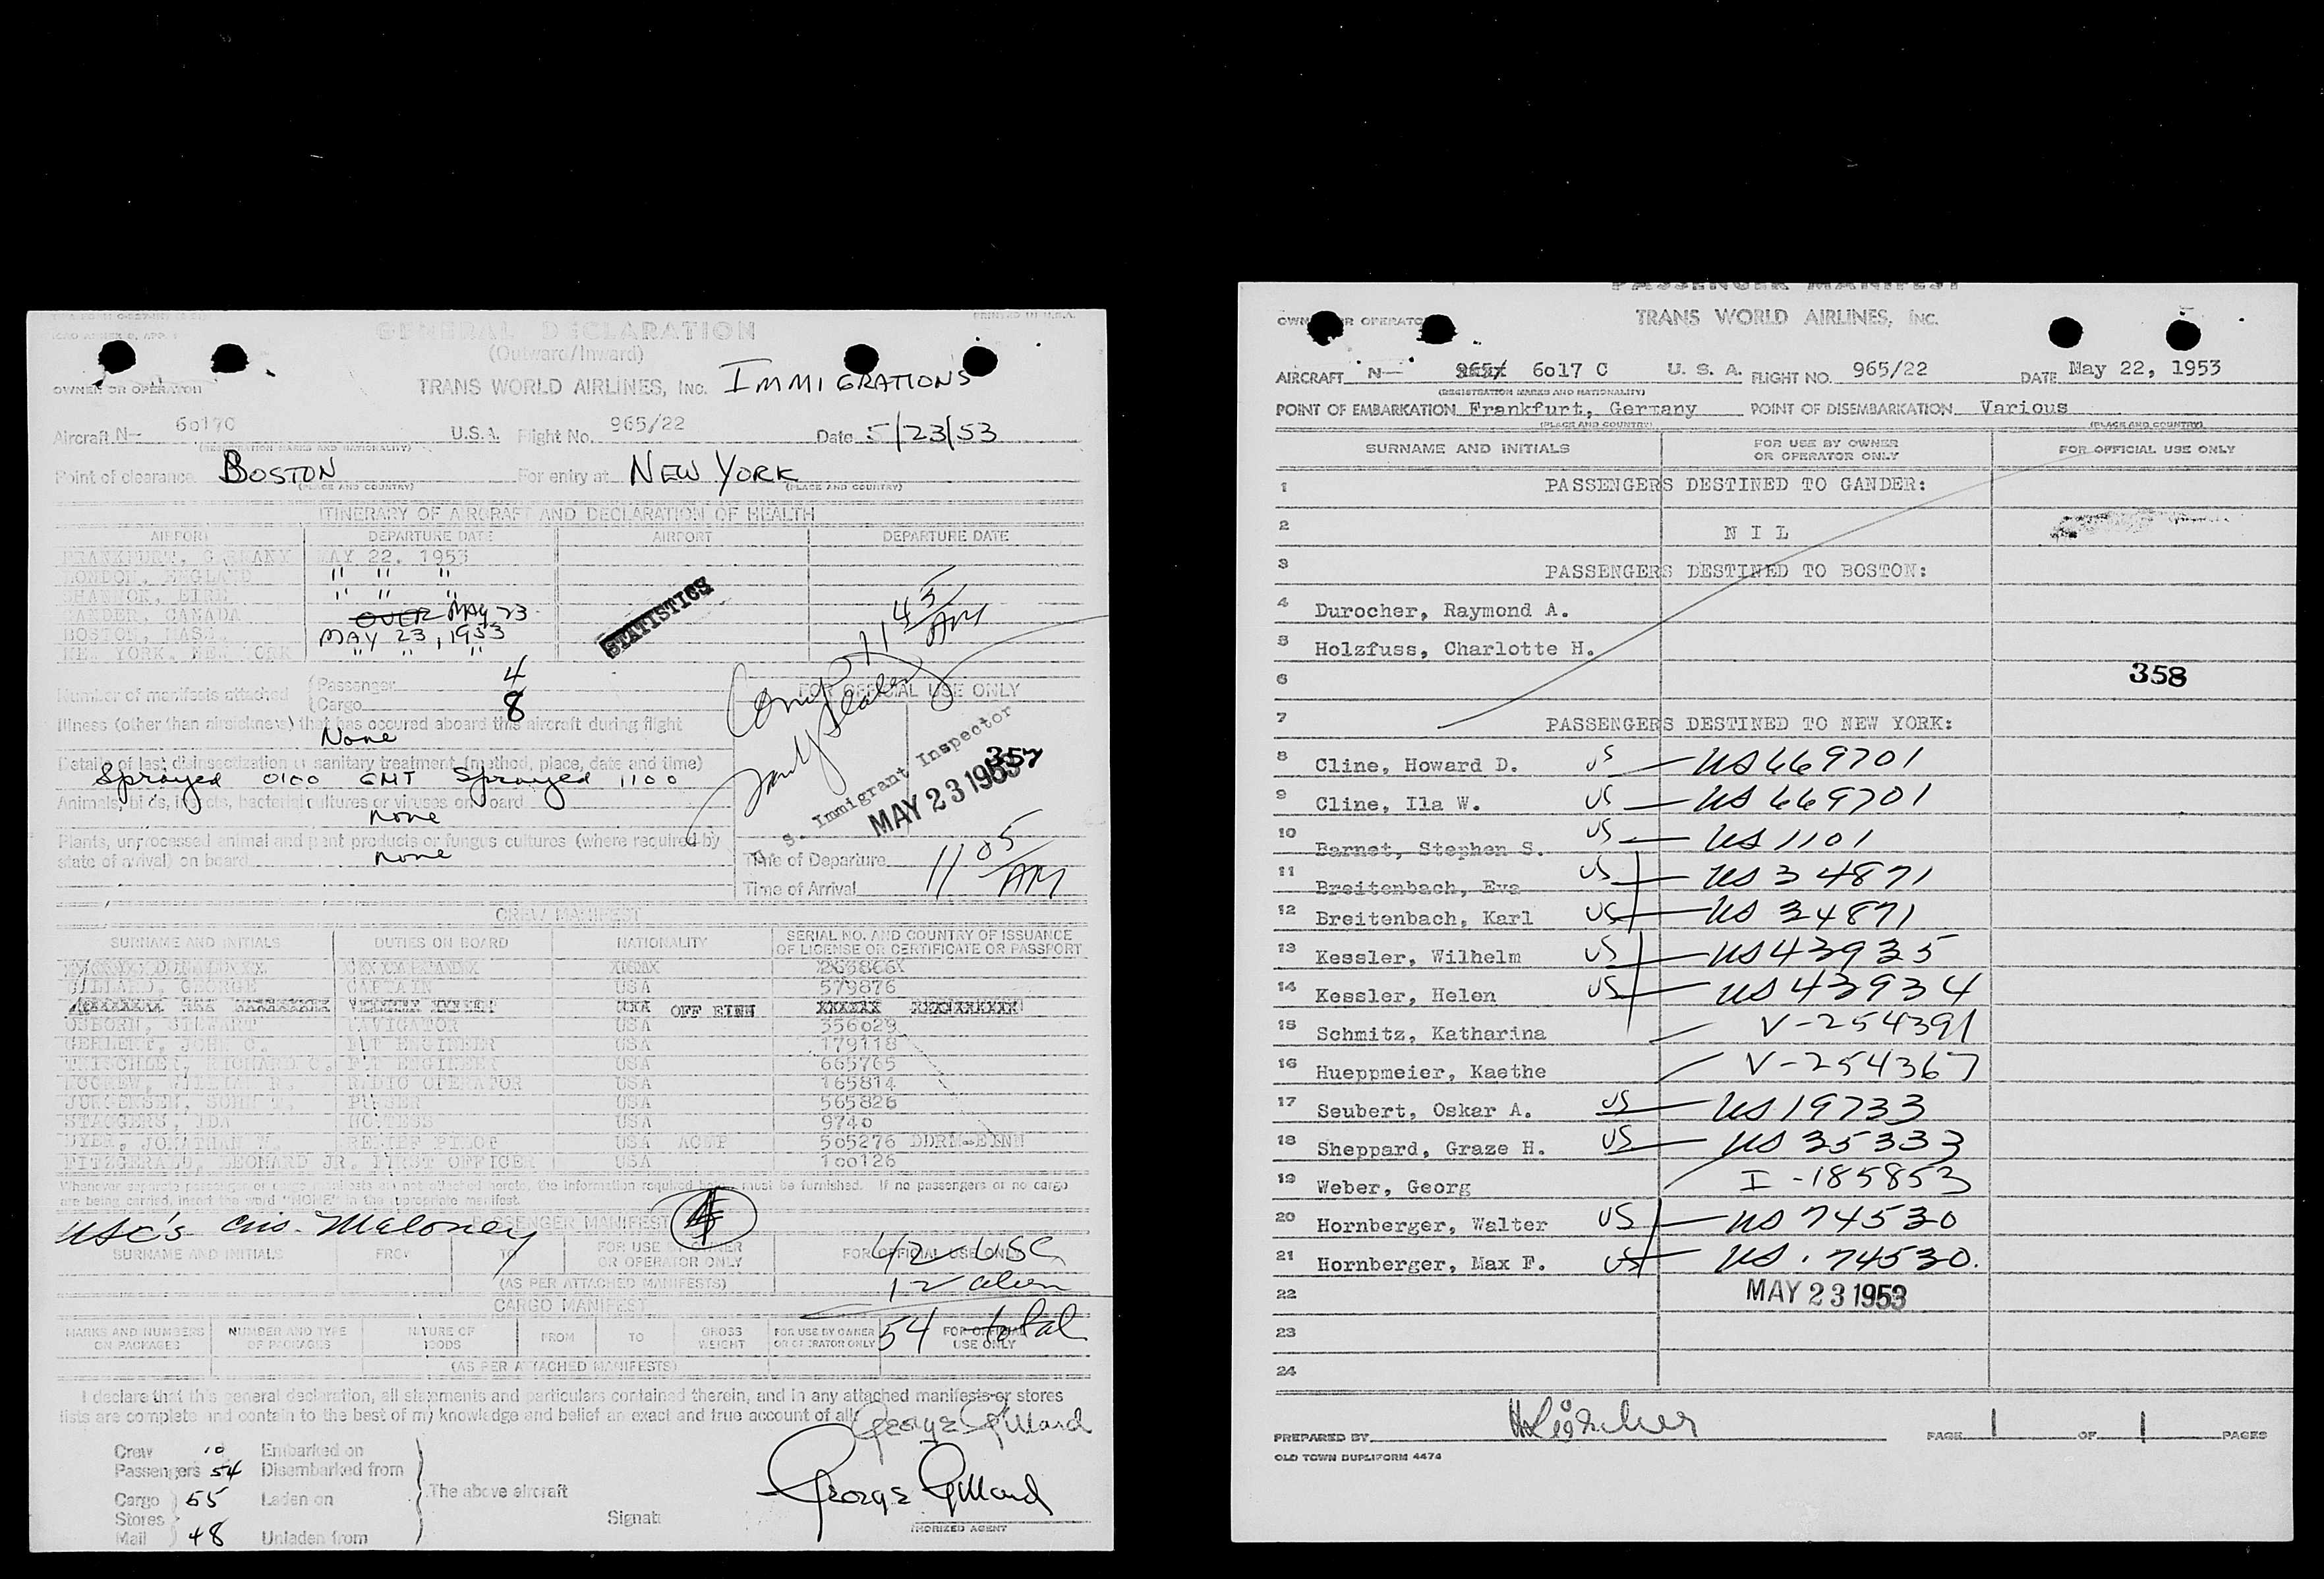 PRINTED IN U.S.A.
GENERAL DECLARATION
(Outward/Inward)
OWNER OR OPERATOR TRANS WORLD AIRLINES, INC. IMMIGRATIONS
Aircraft N- 6017C U.S.A. Flight No. 965/22 Date 5/23/53
(REGISTRATION MARKS AND NATIONALITY)
Point of clearance BOSTON For entry at NEW YORK
(PLACE AND COUNTRY) (PLACE AND COUNTRY)
ITINERARY OF AIRCRAFT AND DECLARATION OF HEALTH
AIRPORT DEPARTURE DATE AIRPORT DEPARTURE DATE
FRANKFURT, GERMANY MAY 22, 1953
LONDON, ENGLAND " " "
SHANNON, EIRE " " "
GANDER, CANADA OVER MAY 23
BOSTON, MASS. MAY 23, 1953
NEW YORK, NEW YORK " " "
STATISTICS
11 45 AM
Number of manifests attached Passenger 4
Cargo 8
FOR OFFICIAL USE ONLY
Illness (other than airsickness) that has occured aboard this aircraft during flight
None
Details of last disinsectization or sanitary treatment (method, place, date and time)
Sprayed 0100 GMT Sprayed 1100
Animals, birds, insects, bacterial cultures or viruses on board
none
Plants, unprocessed animal and plant products or fungus cultures (where required by
state of arrival) on board none
U. S. Immigrant Inspector
MAY 23 1953
357
Time of Departure 11 05 AM
Time of Arrival
CREW MANIFEST
SURNAME AND INITIALS DUTIES ON BOARD NATIONALITY SERIAL NO. AND COUNTRY OF ISSUANCE
OF LICENSE OR CERTIFICATE OR PASSPORT
GILLARD, GEORGE CAPTAIN USA 579876
OFF EINN
OSBORN, STEWART NAVIGATOR USA 356029
GEHLERT, JOHN C. FLT ENGINEER USA 179118
TRISCHLER, RICHARD C. FLT ENGINEER USA 665765
RADIO OPERATOR USA 165814
JURGENSEN, JOHN PURSER USA 565826
STAGGERS, IDA HOSTESS USA 9740
DYER, JONATHAN W. RELIEF PILOT USA 505276
FITZGERALD, LEONARD JR. FIRST OFFICER USA 100126
Whenever separate passenger or cargo manifests are not attached hereto, the information required below must be furnished. If no passengers or no cargo
are being carried, insert the word "NONE" in the appropriate manifest.
USC's Maloney PASSENGER MANIFEST 4
SURNAME AND INITIALS FROM TO FOR USE BY OWNER
OR OPERATOR ONLY FOR OFFICIAL USE ONLY
42 USC
(AS PER ATTACHED MANIFESTS) 12 alien
CARGO MANIFEST
54 total
MARKS AND NUMBERS
ON PACKAGES NUMBER AND TYPE
OF PACKAGES NATURE OF
GOODS FROM TO GROSS
WEIGHT FOR USE BY OWNER
OR OPERATOR ONLY FOR OFFICIAL
USE ONLY
(AS PER ATTACHED MANIFESTS)
I declare that this general declaration, all statements and particulars contained therein, and in any attached manifests or stores
lists are complete and contain to the best of my knowledge and belief an exact and true account of all
George Gillard
Crew 10 Embarked on
Passengers 54 Disembarked from
Cargo 55 Laden on The above aircraft
Stores
Mail 48 Unladen from
Signat George Gillard
AUTHORIZED AGENT
PASSENGER MANIFEST
OWNER OR OPERATOR TRANS WORLD AIRLINES, INC.
AIRCRAFT N- 6017 C U. S. A. FLIGHT NO. 965/22 DATE May 22, 1953
(REGISTRATION MARKS AND NATIONALITY)
POINT OF EMBARKATION Frankfurt, Germany POINT OF DISEMBARKATION Various
(PLACE AND COUNTRY) (PLACE AND COUNTRY)
SURNAME AND INITIALS FOR USE BY OWNER
OR OPERATOR ONLY FOR OFFICIAL USE ONLY
1 PASSENGERS DESTINED TO GANDER:
2 N I L
3 PASSENGERS DESTINED TO BOSTON:
4 Durocher, Raymond A.
5 Holzfuss, Charlotte H.
6 358
7 PASSENGERS DESTINED TO NEW YORK:
8 Cline, Howard D. US US 669701
9 Cline, Ila W. US US 669701
10 Barnet, Stephen S. US US 1101
11 Breitenbach, Eva US US 34871
12 Breitenbach, Karl US US 34871
13 Kessler, Wilhelm US US 43935
14 Kessler, Helen US US 43934
15 Schmitz, Katharina V-254391
16 Hueppmeier, Kaethe V-254367
17 Seubert, Oskar A. US US 19733
18 Sheppard, Graze H. US US 35333
19 Weber, Georg I-185853
20 Hornberger, Walter US US 74530
21 Hornberger, Max F. US US. 74530.
22 MAY 23 1953
23
24
PREPARED BY PAGE 1 OF 1 PAGES
OLD TOWN DUPLIFORM 4474